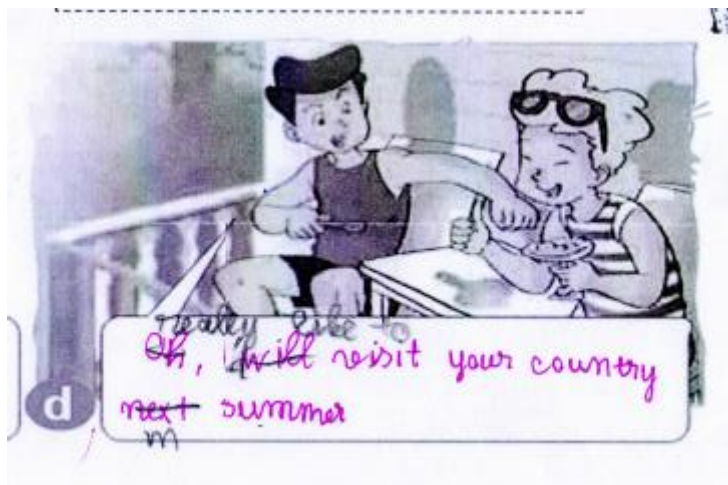 really like to
Oh, I will visit your country
next summer
m
d